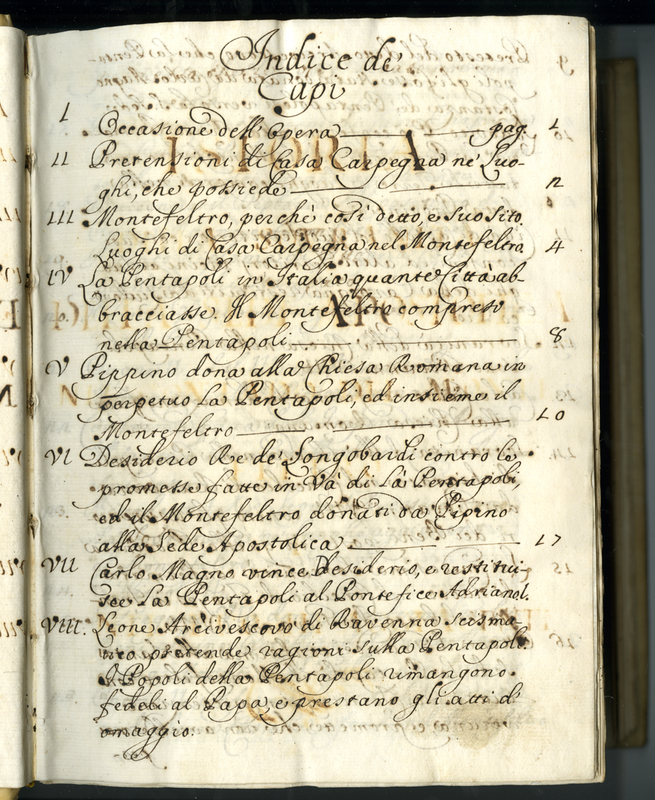 Indice de'
Capi
I Occasione dell'Opera pag. 1
II Pretensioni di Casa Carpegna ne' Luo-
ghi, che possiede 12
III Montefeltro, perchè così detto, e suo sito
Luoghi di Casa Carpegna nel Montefeltro 4
IV La Pentapoli in Italia quante Città ab-
bracciasse. Il Montefeltro compreso
nella Pentapoli 8
V Pippino dona alla Chiesa Romana in
perpetuo La Pentapoli, ed insieme il
Montefeltro 10
VI Desiderio Re de' Longobardi contro le
promesse fatte in Và di Là Pentapoli,
ed il Montefeltro donati da Pipino
alla Sede Apostolica 17
VII Carlo Magno vince Desiderio, e restitui-
sce La Pentapoli al Pontefice Adriano I.
VIII. Leone Arcivescovo di Ravenna scisma-
tico pretende ragioni sulla Pentapoli.
I Popoli della Pentapoli rimangono
fedeli al Papa, e prestano gli atti d'
omaggio.